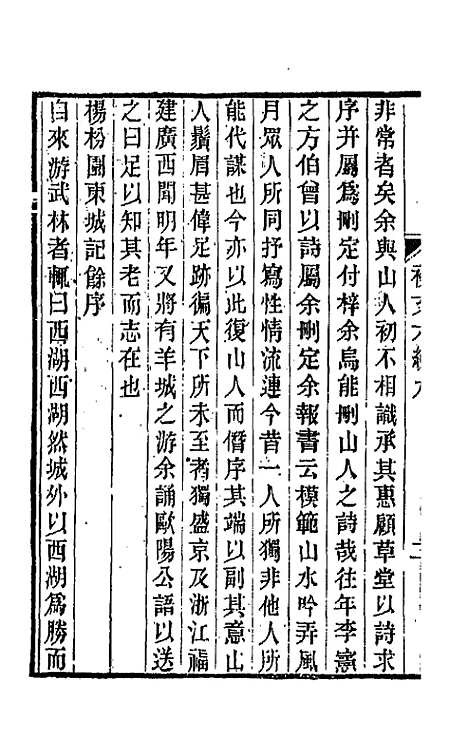 非常者矣余與山人初不相識承其惠顧草堂以詩求
序并屬爲刪定付梓余烏能刪山人之詩哉往年李憲
之方伯曾以詩屬余刪定余報書云模範山水吟弄風
月眾人所同抒寫性情流連今昔一人所獨非他人所
能代謀也今亦以此復山人而僭序其端以副其意山
人鬚眉甚偉足跡徧天下所未至者獨盛京及浙江福
建廣西聞明年又將有羊城之游余誦歐陽公語以送
之曰足以知其老而志在也
楊枌園東城記餘序
自來游武林者輒曰西湖西湖然城外以西湖爲勝而